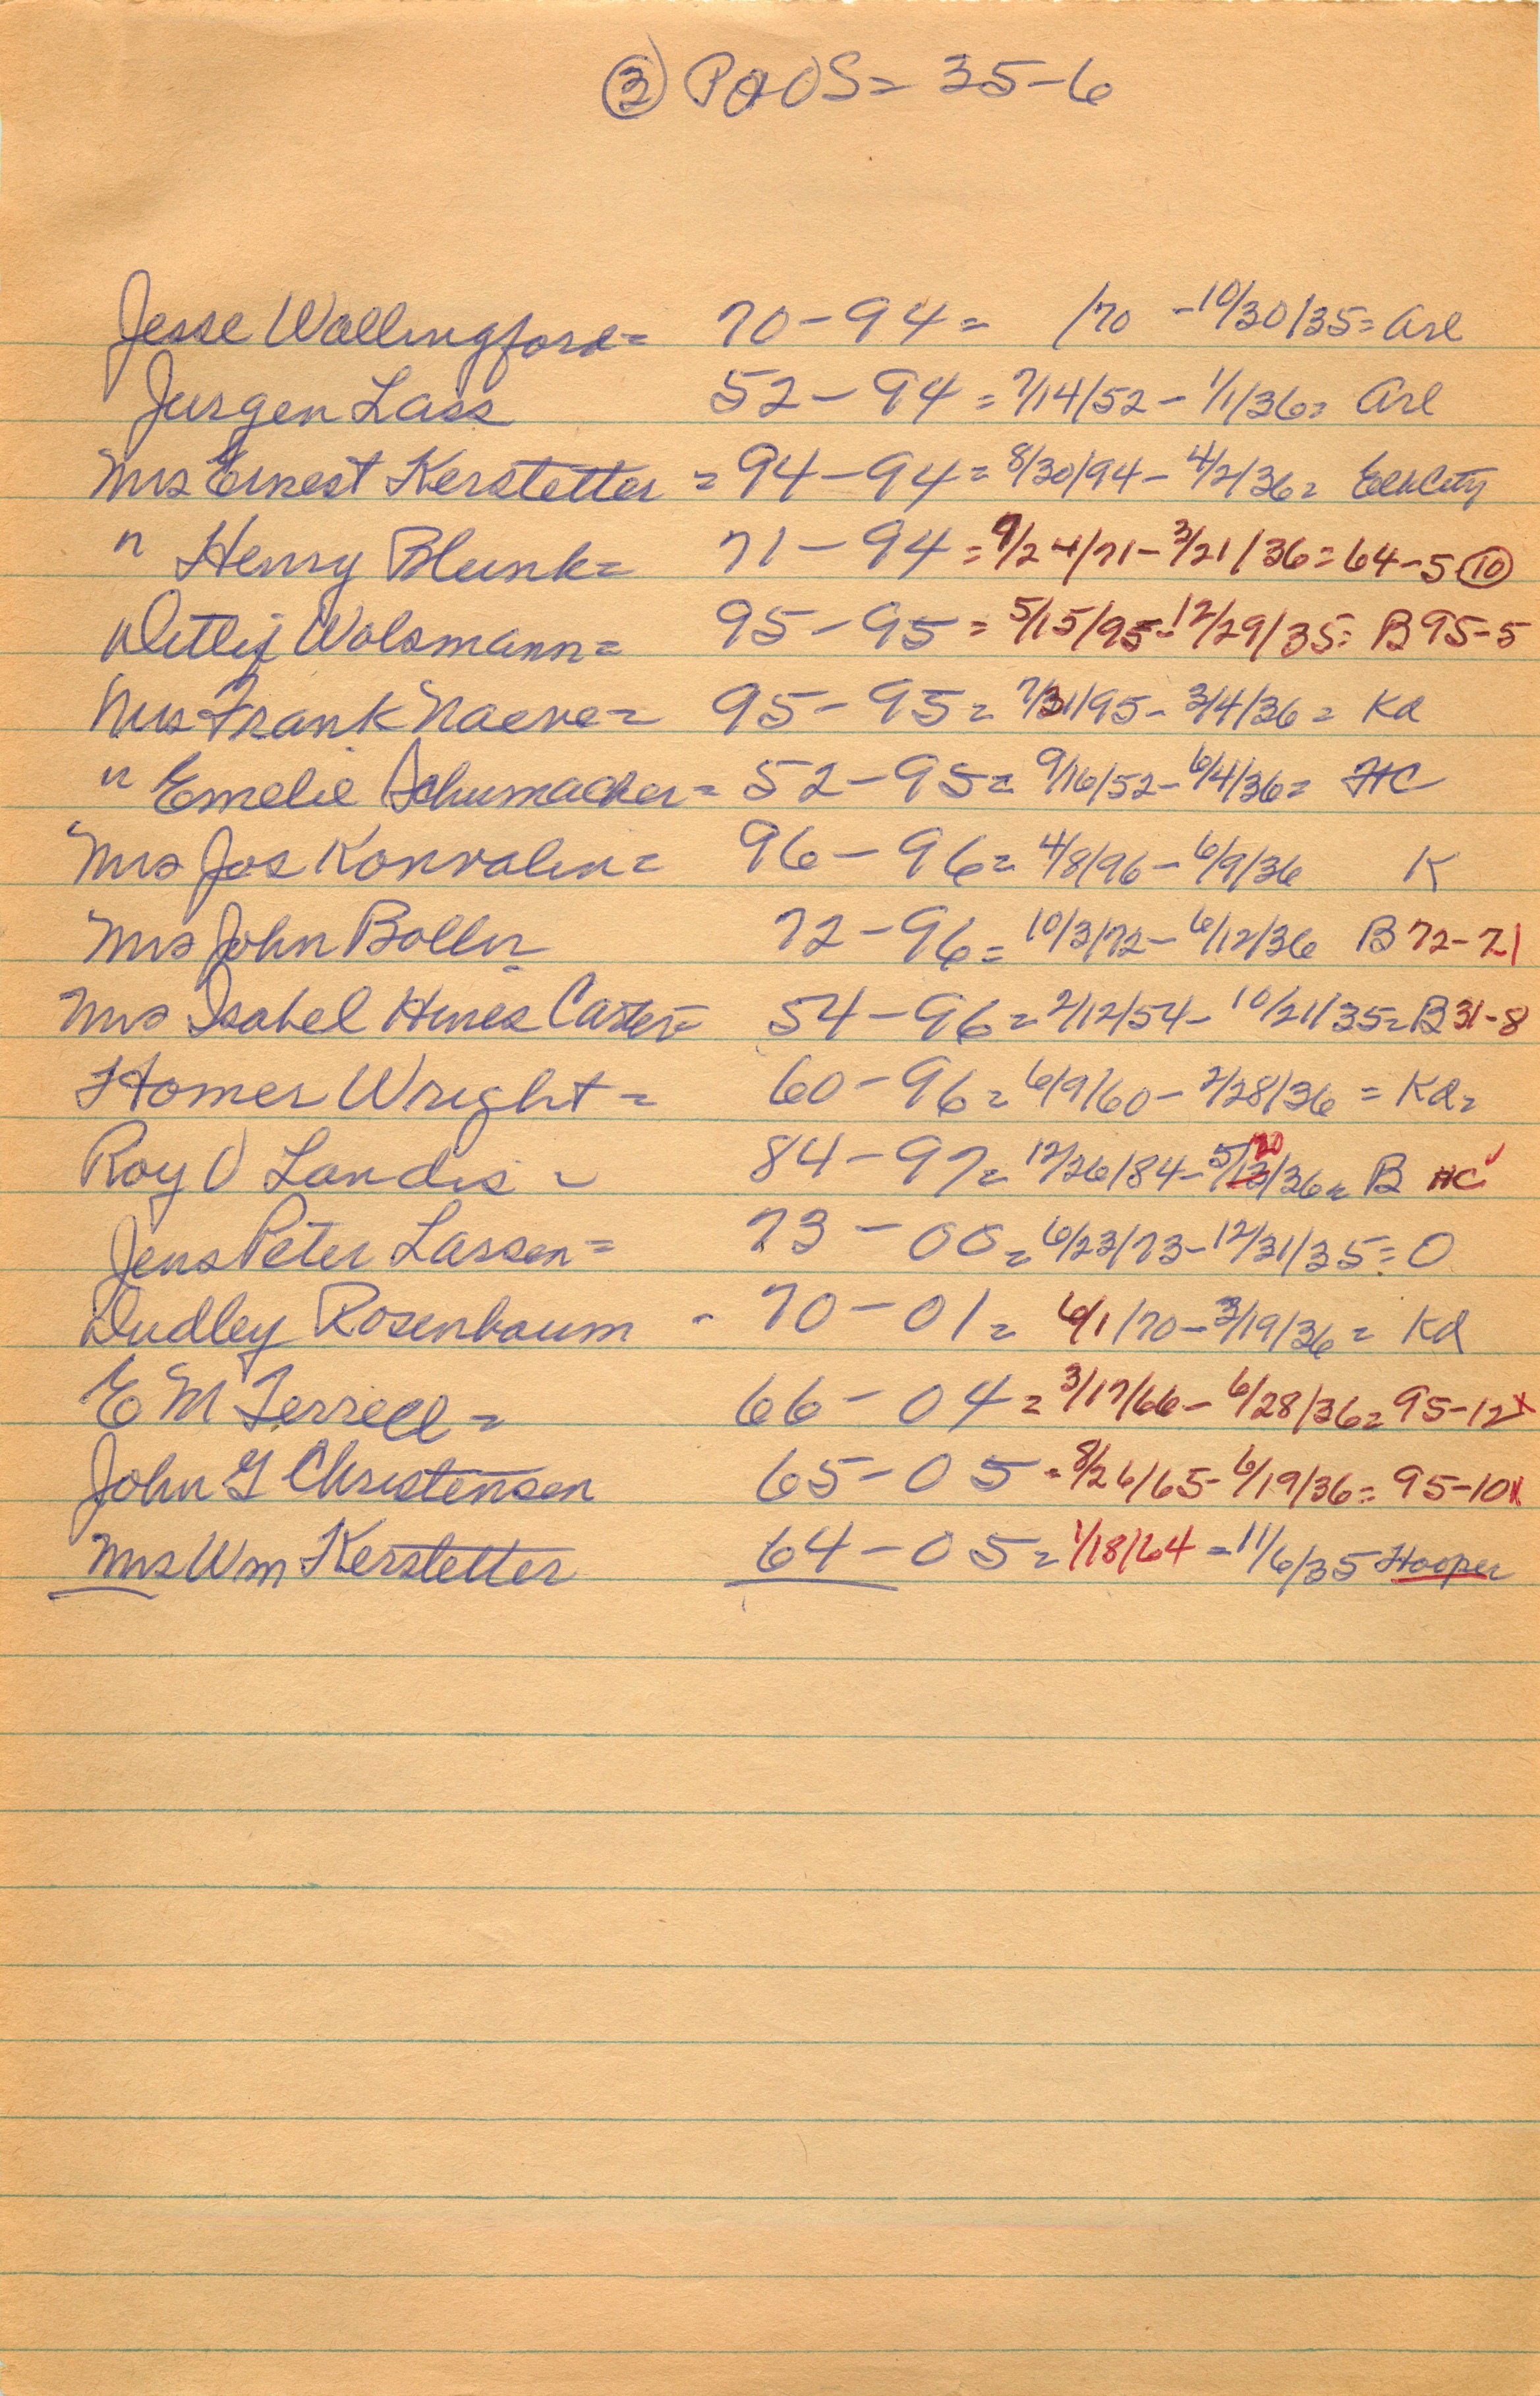 ③ P & OS = 35-6
Jesse Wallingford = 70 - 94 = /70 - 10/30/35 = Arl
Jurgen Lass 52 - 94 = 7/14/52 - 1/1/36 = Arl
Mrs Ernest Kerstetter = 94 - 94 = 8/30/94 - 4/2/36 = Elk City
" Henry Blunk = 71 - 94 = 9/24/71 - 3/21/36 = 64-5 ⑩
Detlef Wolsmann = 95 - 95 = 5/15/95 - 12/29/35 = B 95-5
Mrs Frank Naeve = 95 - 95 = 7/31/95 - 3/4/36 = Kd
" Emelie Schumacker = 52 - 95 = 9/16/52 - 6/4/36 = HC
Mrs Jos Konvalin = 96 - 96 = 4/8/96 - 6/9/36 K
Mrs John Boller 72 - 96 = 10/3/72 - 6/12/36 B 72-21
Mrs Isabel Hines Carter = 54 - 96 = 2/12/54 - 10/21/35 = B 31-8
Homer Wright = 60 - 96 = 6/9/60 - 2/28/36 = Kd =
Roy O Landis = 84 - 97 = 12/26/84 - 5/13/36 = B HC ✓
20
Jens Peter Lassen = 73 - 00 = 6/23/73 - 12/31/35 = O
Dudley Rosenbaum - 70 - 01 = 6/1/70 - 3/19/36 = Kd
E M Terrell = 66 - 04 = 3/17/66 - 6/28/36 = 95-12 x
John G Christensen 65 - 05 = 8/26/65 - 6/19/36 = 95-10 x
Mrs Wm Kerstetter 64 - 05 = 1/18/64 = 11/6/35 Hooper